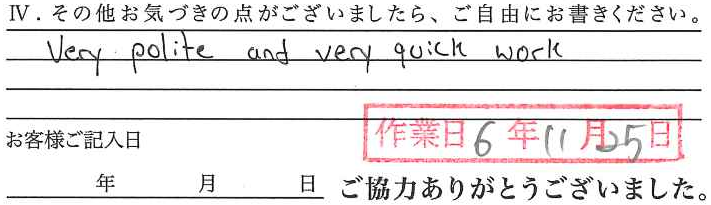 Ⅳ．その他お気づきの点がございましたら、ご自由にお書きください。
Very polite and very quick work
お客様ご記入日
作業日6年11月25日
年 月 日 ご協力ありがとうございました。